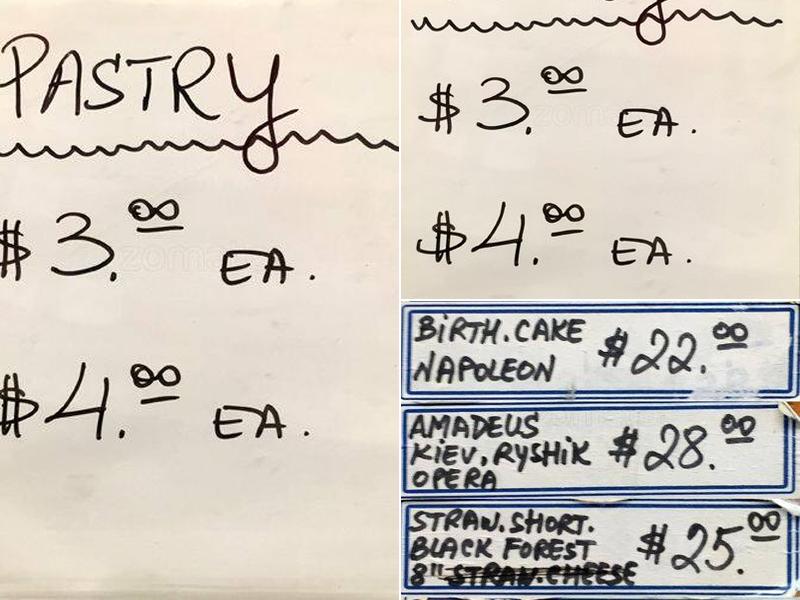 PASTRY
$3.00 EA.
$4.00 EA.
$3.00 EA.
$4.00 EA.
BIRTH.CAKE
NAPOLEON $22.00
AMADEUS
KIEV, RYSHIK $28.00
OPERA
STRAW.SHORT.
BLACK FOREST $25.00
8" STRAW.CHEESE